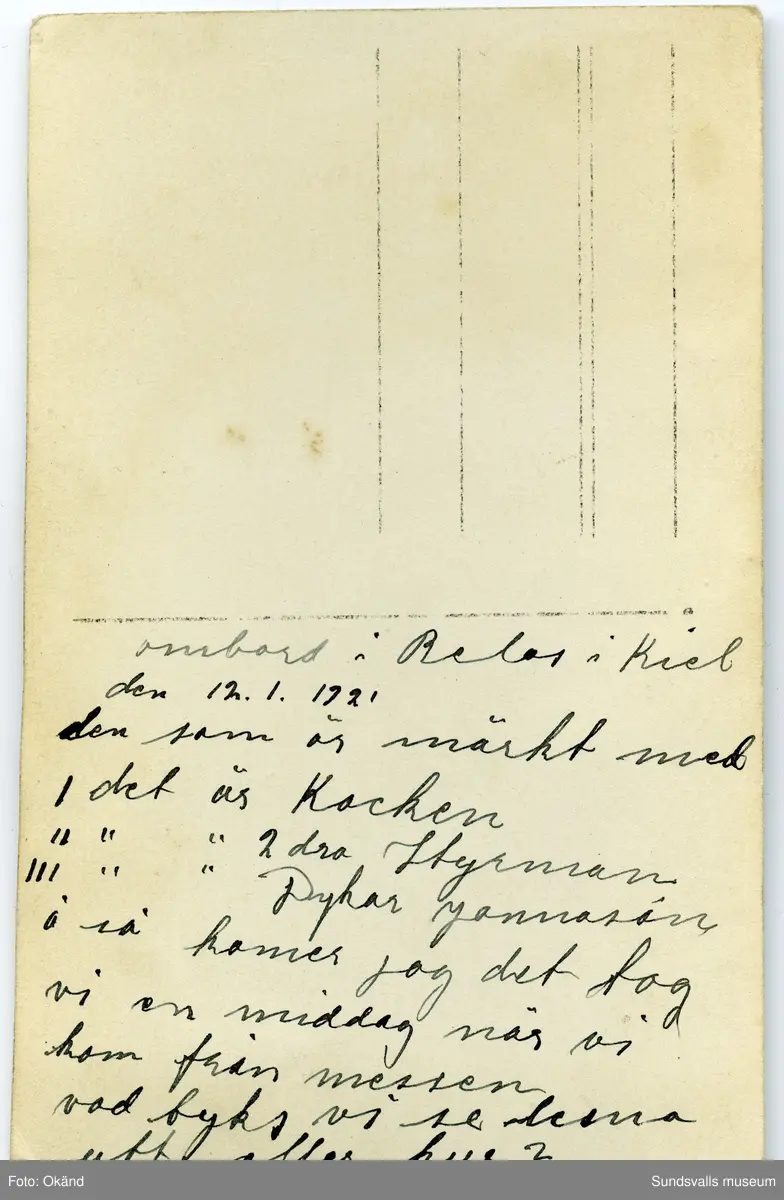 ombord i Relos i Kiel
den 12.1.1921
den som är märkt med
I det är Kocken
II " " 2dra Styrman
III " " Dykar Jonnasón
å så komer jag det tog
vi en middag när vi
kom från messen
vad tyks vi se lesna
utt eller hur?
Foto: Okänd
Sundsvalls museum